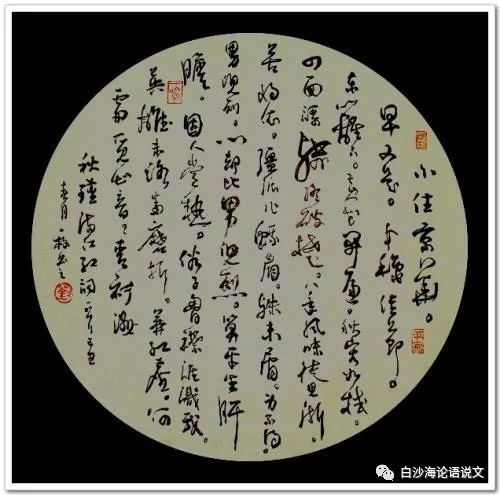 小住京華。
早又是。中秋佳節。
為籬下。黃花開遍。秋容如拭。
四面歌殘終破楚。八年風味徒思浙。
苦將儂。強派作蛾眉。殊未屑。身不得。
男兒列。心卻比男兒烈。算平生肝
膽。因人常熱。俗子胸襟誰識我。
英雄末路當磨折。莽紅塵。何
處覓知音。青衫濕
秋瑾滿江紅詞
白沙海论语说文